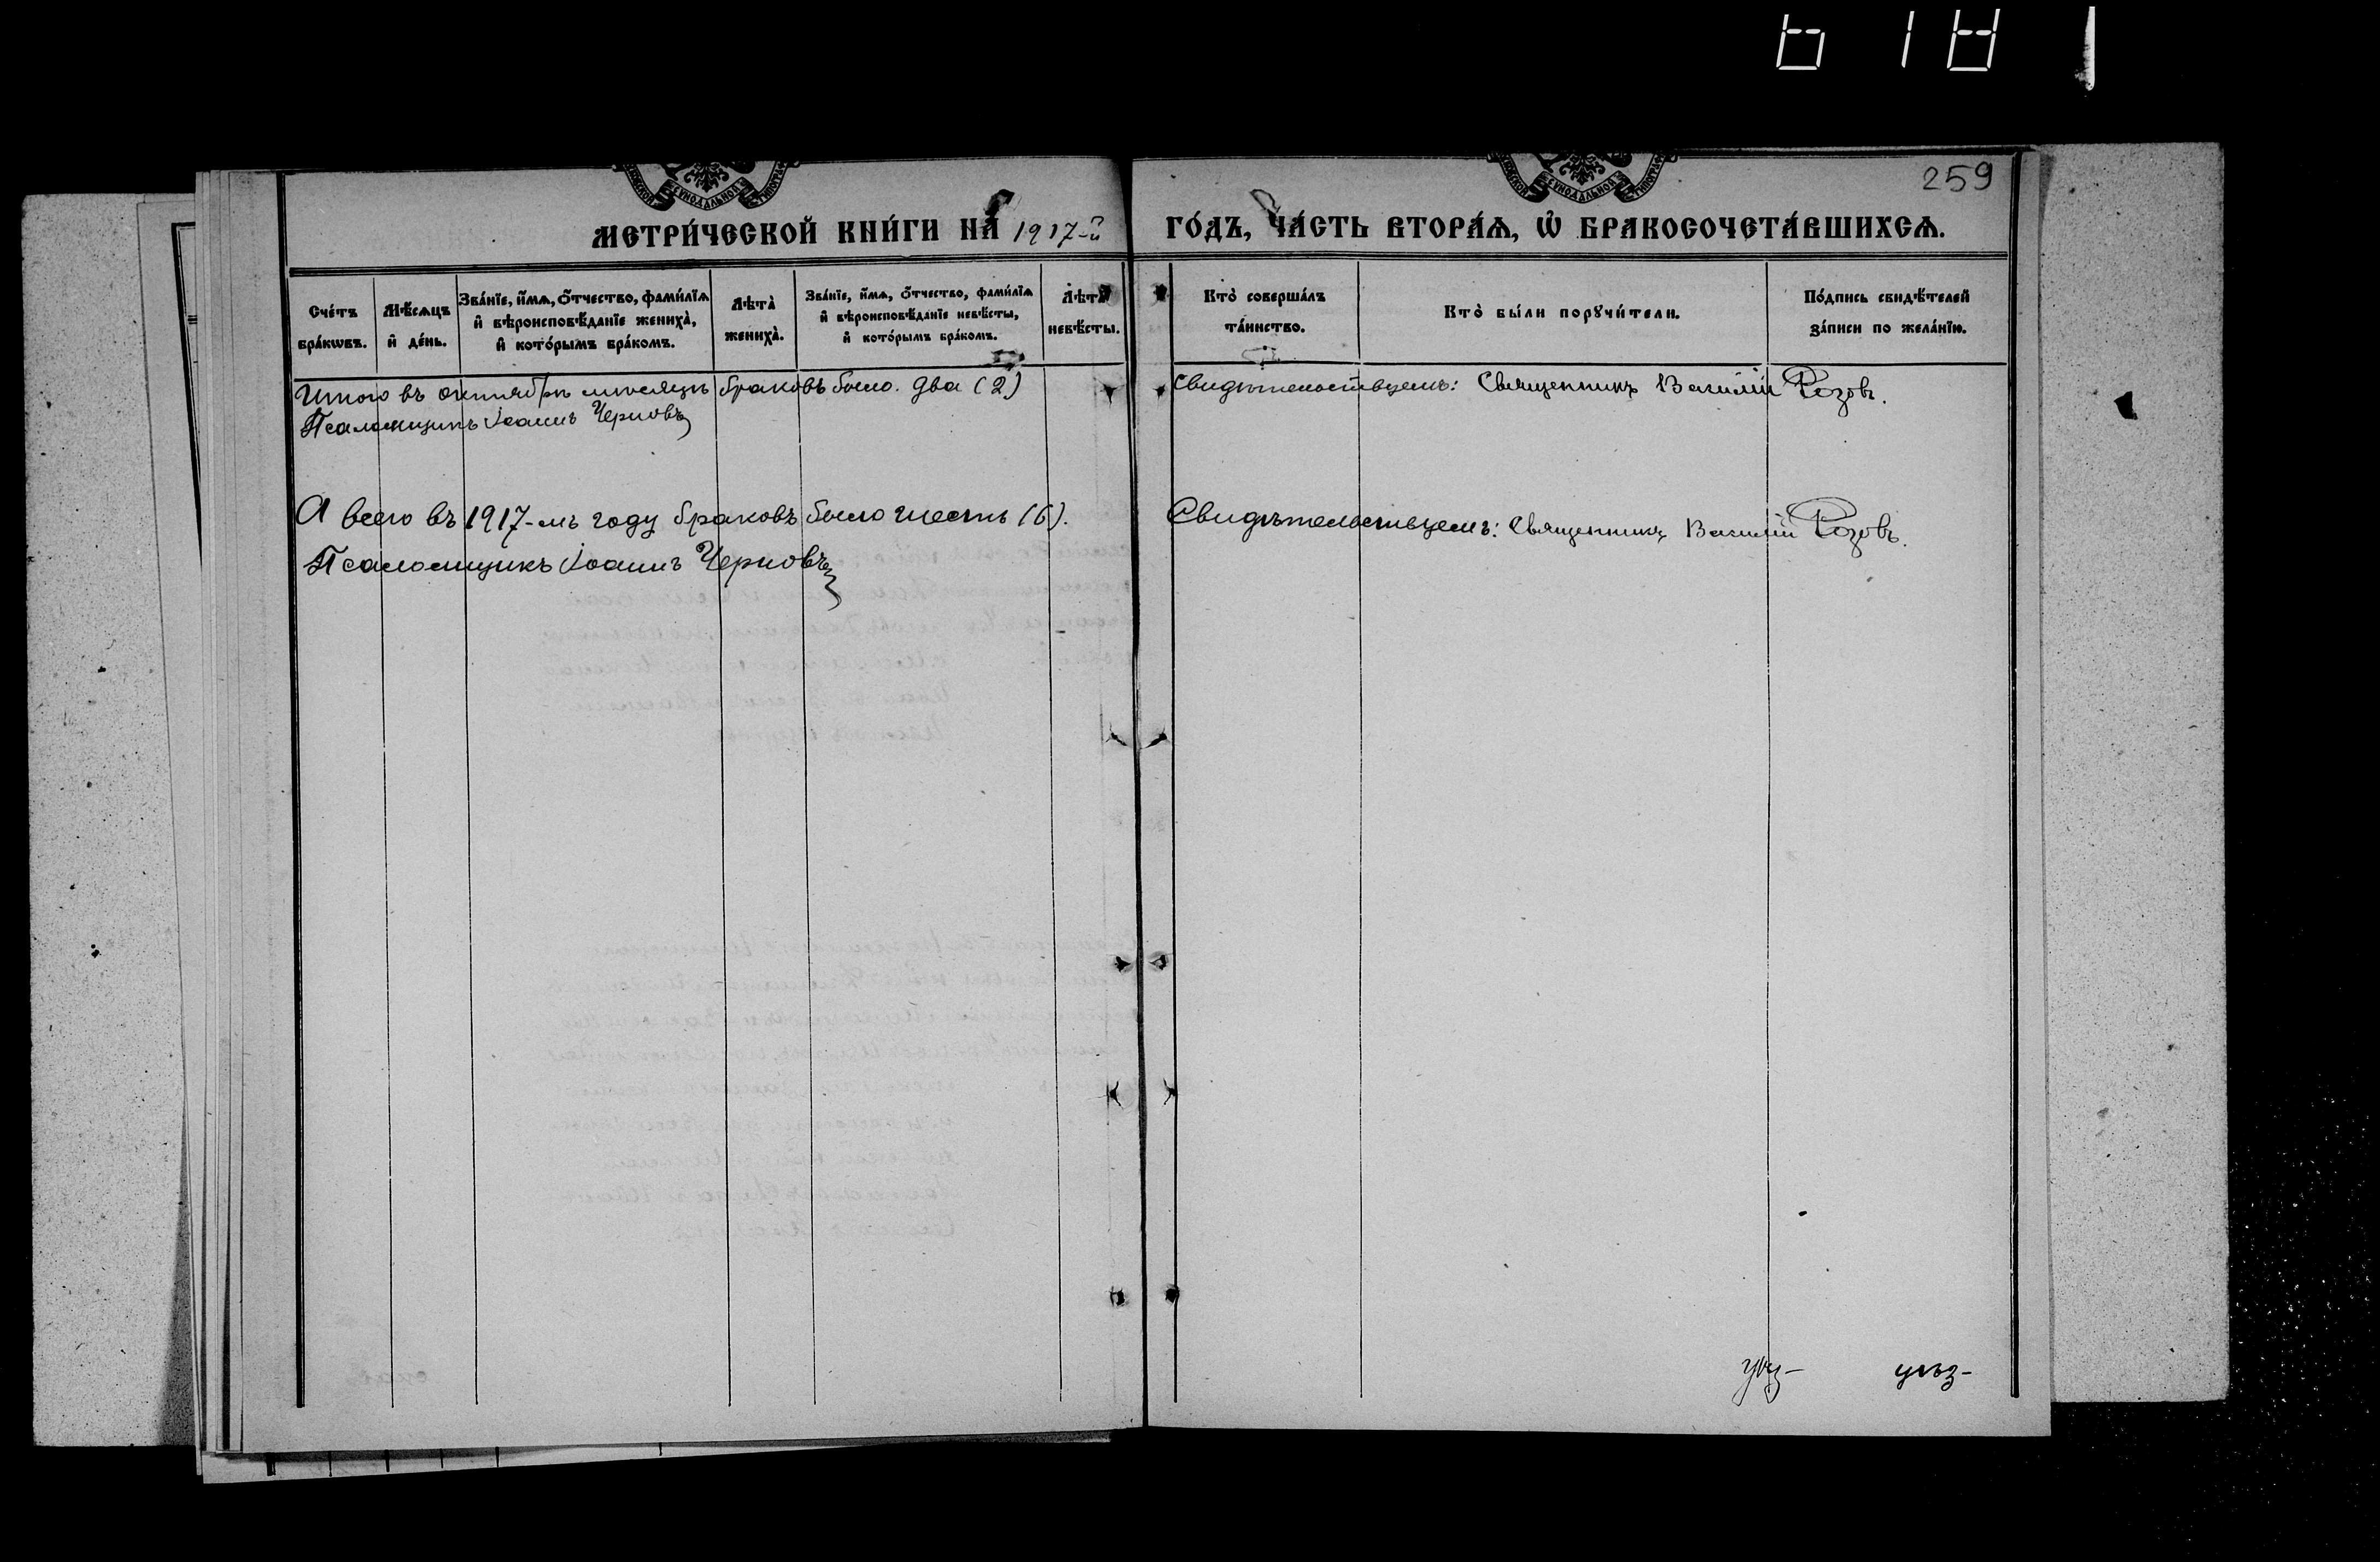 259
МЕТРИ́ЧЕСКОЙ КНИ́ГИ НА 1917-й ГО́ДЪ, ЧА́СТЬ ВТОРА́Ѧ, Ѡ҆ БРАКОСОЧЕТА́ВШИХСѦ.
Сче́тъ бра́кѡвъ.
Мѣ́сѧцъ и҆ де́нь.
Зва́нїе, и҆́мѧ, ѻ҆́тчество, фами́лїѧ и҆ вѣроисповѣ́данїе жениха̀, и҆ кото́рымъ бра́комъ.
Лѣта̀ жениха̀.
Зва́нїе, и҆́мѧ, ѻ҆́тчество, фами́лїѧ и҆ вѣроисповѣ́данїе невѣ́сты, и҆ кото́рымъ бра́комъ.
Лѣта̀ невѣ́сты.
Кто̀ соверша́лъ та́инство.
Кто̀ бы́ли порꙋчи́тели.
По́дпись свидѣ́телей за́писи по жела́нїю.
Итого въ октябрѣ мѣсяцѣ браковъ было. два (2)
Псаломщикъ Іоаннъ Черновъ
Свидѣтельствуемъ: Священникъ Василій Розовъ.
А всего въ 1917-мъ году браковъ было шесть (6).
Псаломщикъ Іоаннъ Черновъ
Свидѣтельствуемъ: Священникъ Василій Розовъ.
уѣз-